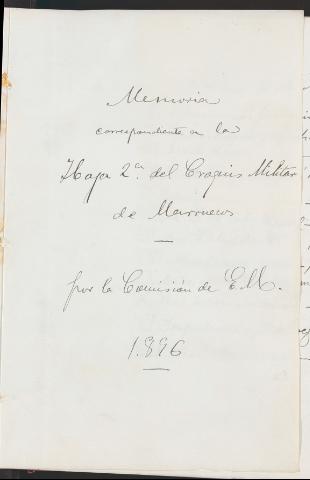 Memoria
correspondiente a la
Hoja 2ª. del Croquis Militar
de Marruecos
por la Comisión de E.M.
1.896